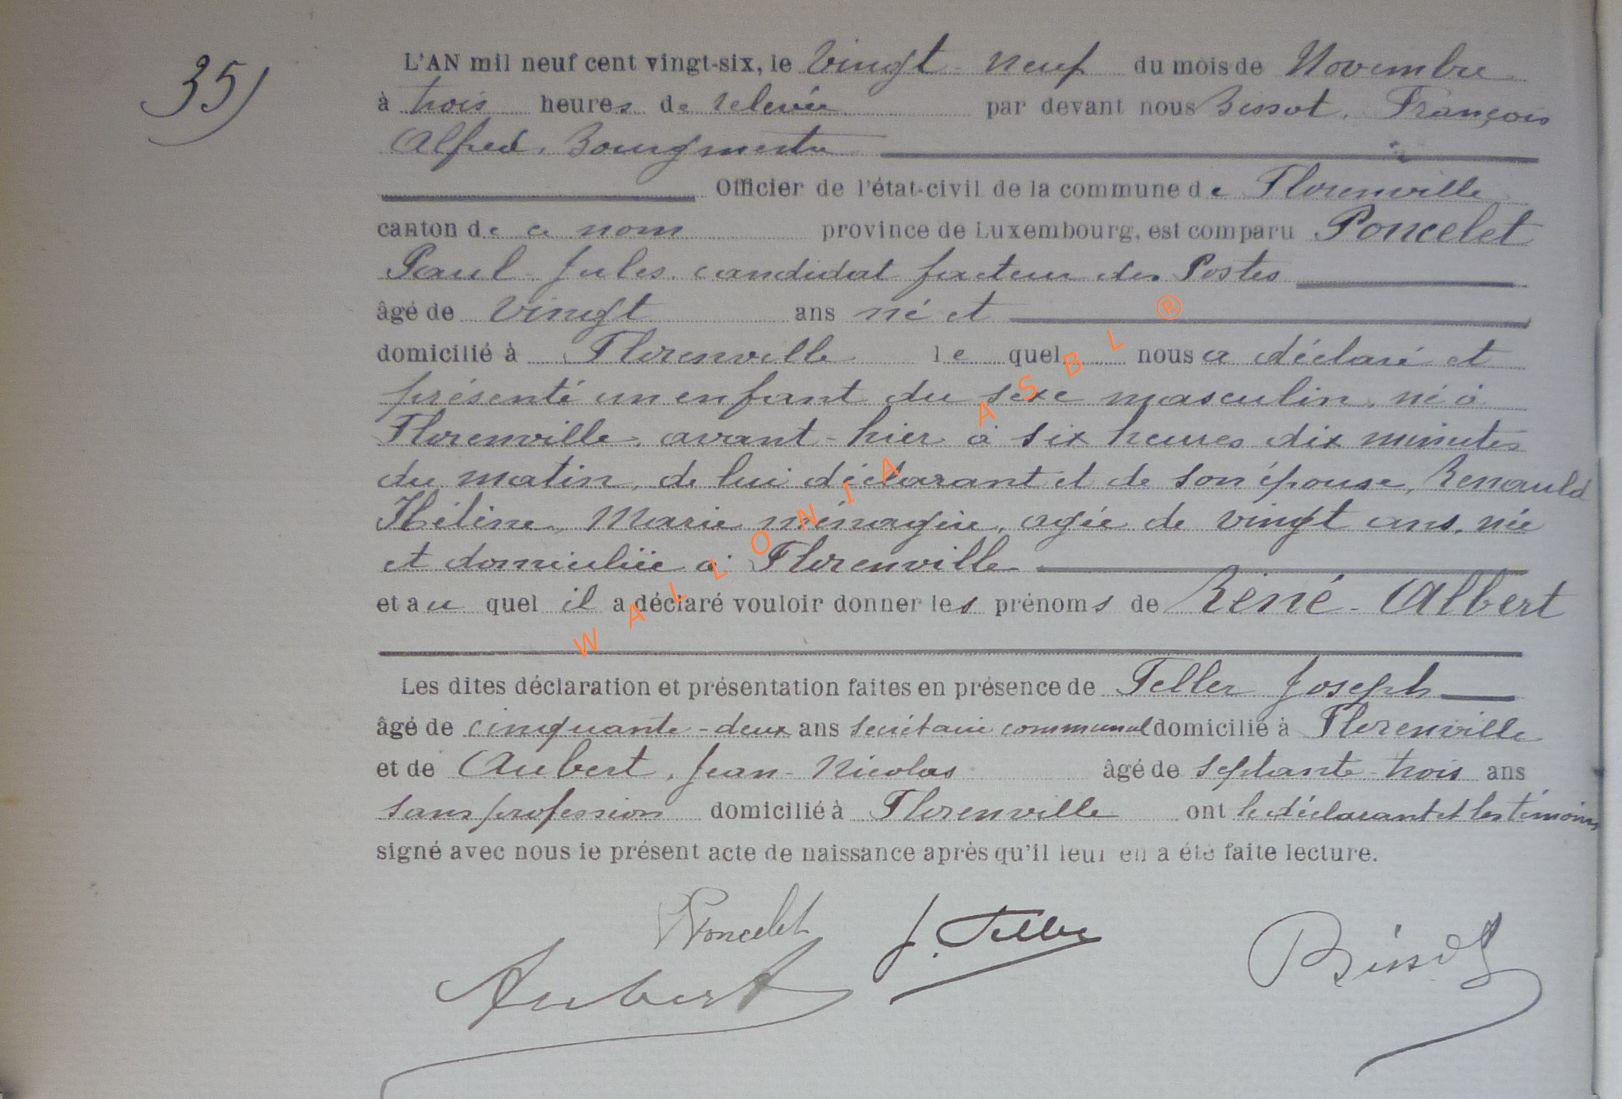 35)
L'AN mil neuf cent vingt-six, le Vingt-neuf du mois de Novembre
à trois heures de relevée par devant nous Bissot, François
Alfred, Bourgmestre
Officier de l'état-civil de la commune de Florenville
canton de ce nom province de Luxembourg, est comparu Poncelet
Paul-Jules, candidat facteur des Postes
âgé de Vingt ans né et
domicilié à Florenville le quel nous a déclaré et
présenté un enfant du sexe masculin, né à
Florenville, avant-hier à six heures dix minutes
du matin, de lui déclarant et de son épouse, Renauld
Hélène, Marie ménagère, agée de vingt ans, née
et domiciliée à Florenville
et au quel il a déclaré vouloir donner les prénoms de René-Albert
Les dites déclaration et présentation faites en présence de Feller Joseph
âgé de cinquante-deux ans secrétaire communal domicilié à Florenville
et de Aubert, Jean-Nicolas âgé de septante-trois ans
sans profession domicilié à Florenville ont le déclarant et les témoins
signé avec nous le présent acte de naissance après qu'il leur en a été faite lecture.
Poncelet J. Feller Bissot
Aubert
WALLONIA ASBL ®